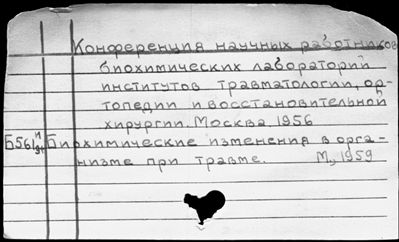 Конференция научных работников
биохимических лабораторий
институтов травматологии, ор-
топедии и восстановительной
хирургии. Москва 1956
Биохимические изменения в орга-
низме при травме. М., 1959